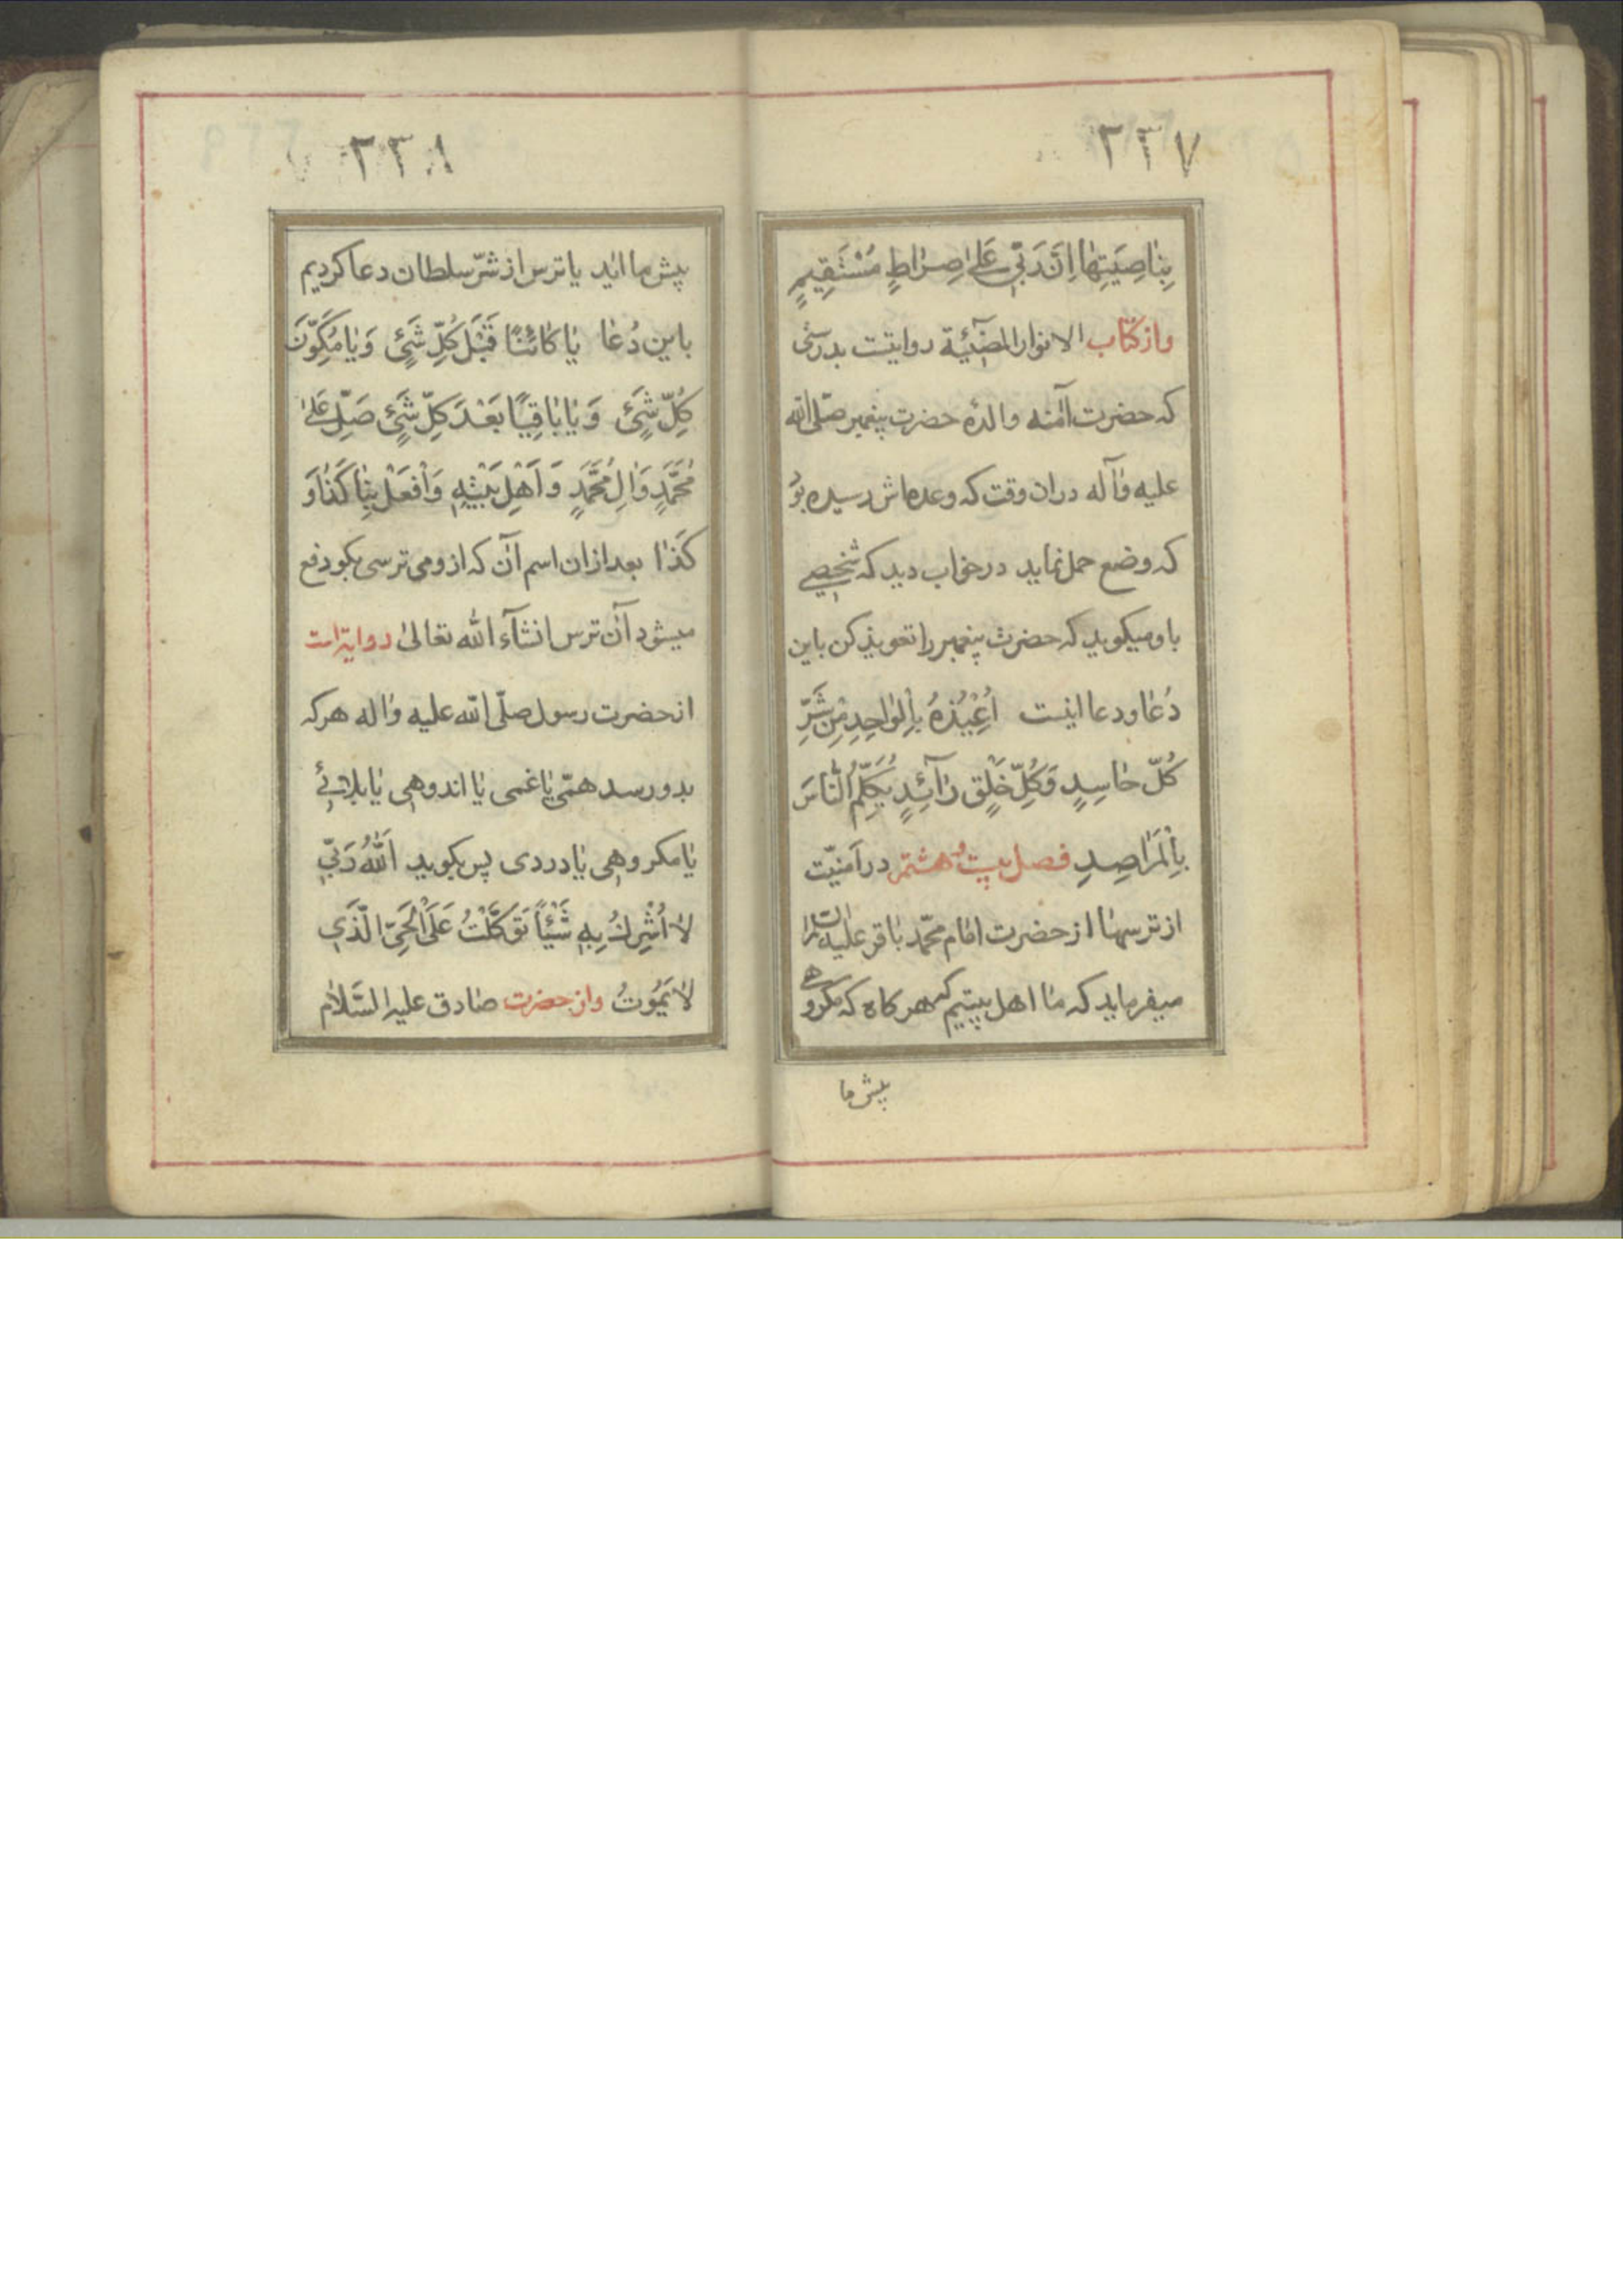 ٢٢٧
بِنٰاصِيَتِهٰا اِنَّ رَبّي عَلىٰ صِرٰاطٍ مُسْتَقِيمٍ
واز کتاب الانوار المضَٓيئة روایتست بدرستی
که حضرت آمنه والدهٔ حضرت پیغمبر صلّی الله
علیه وآله دران وقت که وعده‌اش رسیده بود
که وضع حمل نماید در خواب دید که شخصی
باو میکوید که حضرت پیغمبر را تعویذ کن باین
دُعا و دعا اینست اُعِيْذُهُ بِالْوٰاحِدِ مِنْ شَرِّ
كُلّ حٰاسِدٍ وَكُلِّ خَلْقٍ رٰٓائِدٍ يُكَلِّمُ النّٰاسَ
بِالْمَرٰاصِدِ فصل بیست وهشتم در امنیّت
از ترسها از حضرت امام محمّد باقر علیه السلام
میفرماید که ما اهل بیتیم که هرکاه که مکروهی
پیش ما
٢٢٨
پیش ما اید یا ترس از شرّ سلطان دعا کردیم
باین دُعا يٰا كٰائنًا قَبْلَ كُلِّ شَيْئٍ وَيٰا مُكَوِّنَ
كُلِّ شَيْئٍ وَيٰا بٰاقِيًا بَعْدَ كلِّ شَيْئٍ صَلِّ عَلىٰ
مُحَمَّدٍ وَاٰلِ مُحَمَّدٍ وَاَهْلِ بَيْتِهِ وَافْعَلْ بِنٰا كَذٰا وَ
كَذٰا بعد ازان اسم آن که ازو می ترسی بکو دفع
میشود آن ترس انشآء الله تعالیٰ روایة است
از حضرت رسول صلّی الله علیه واله هر که
بدو رسد همّی یا غمی یا اندوهی یا بلائی
یا مکروهی یا دردی پس بکوید اَللّٰهُ رَبّي
لاٰ اُشْرِكُ بِهِ شَيْئاً تَوَكَّلْتُ عَلَى الْحَيّ الَّذي
لاٰ يَمُوتُ واز حضرت صادق علیه السَّلام